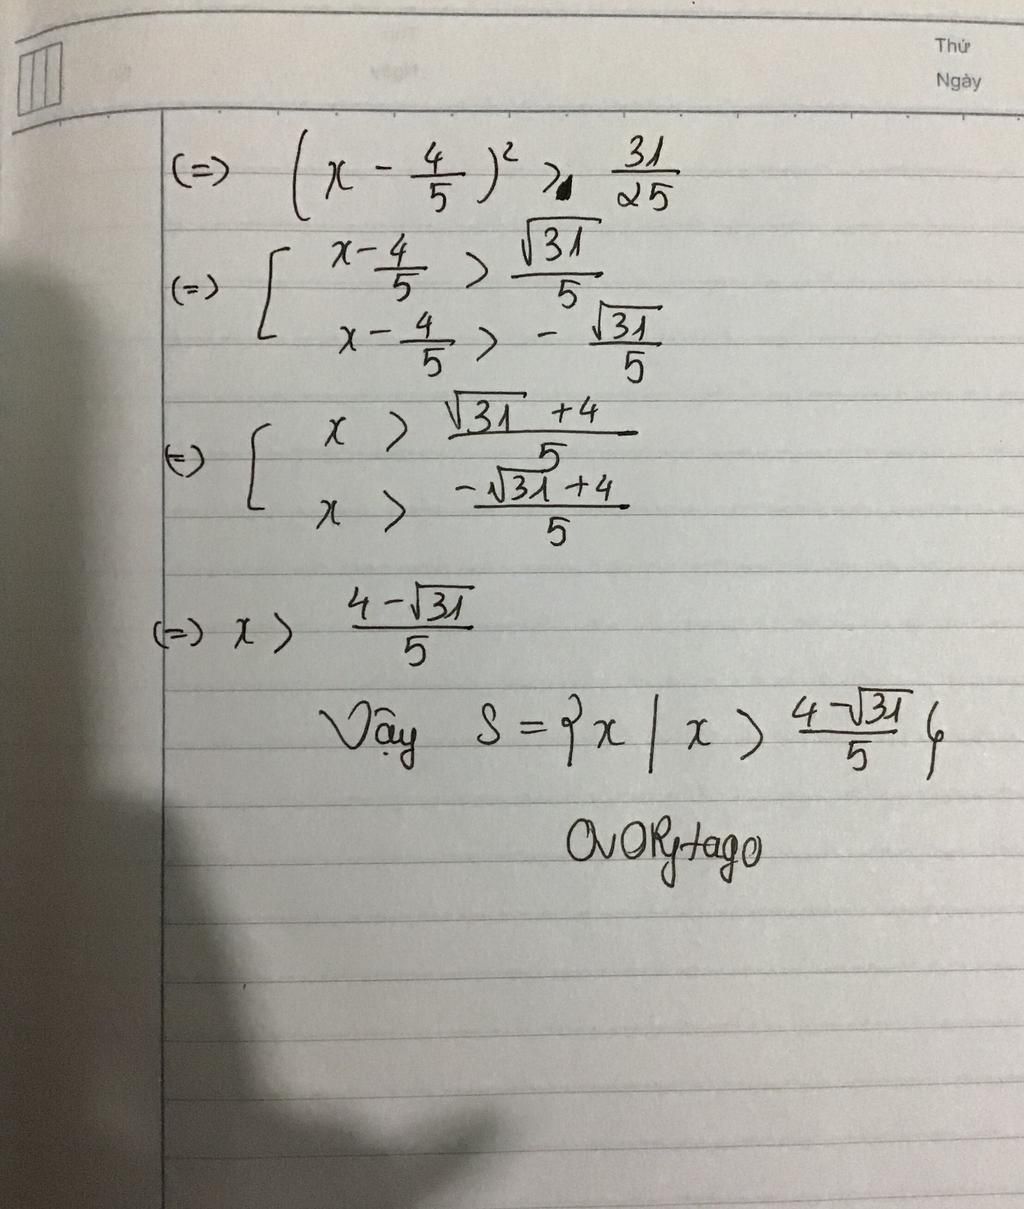 Thứ
Ngày
(=) (x - 4/5)² > 31/25
(=) [ x - 4/5 > √31/5
x - 4/5 > - √31/5
(=) [ x > (√31 + 4)/5
x > (-√31 + 4)/5
(=) x > (4 - √31)/5
Vậy S = {x | x > (4 - √31)/5}